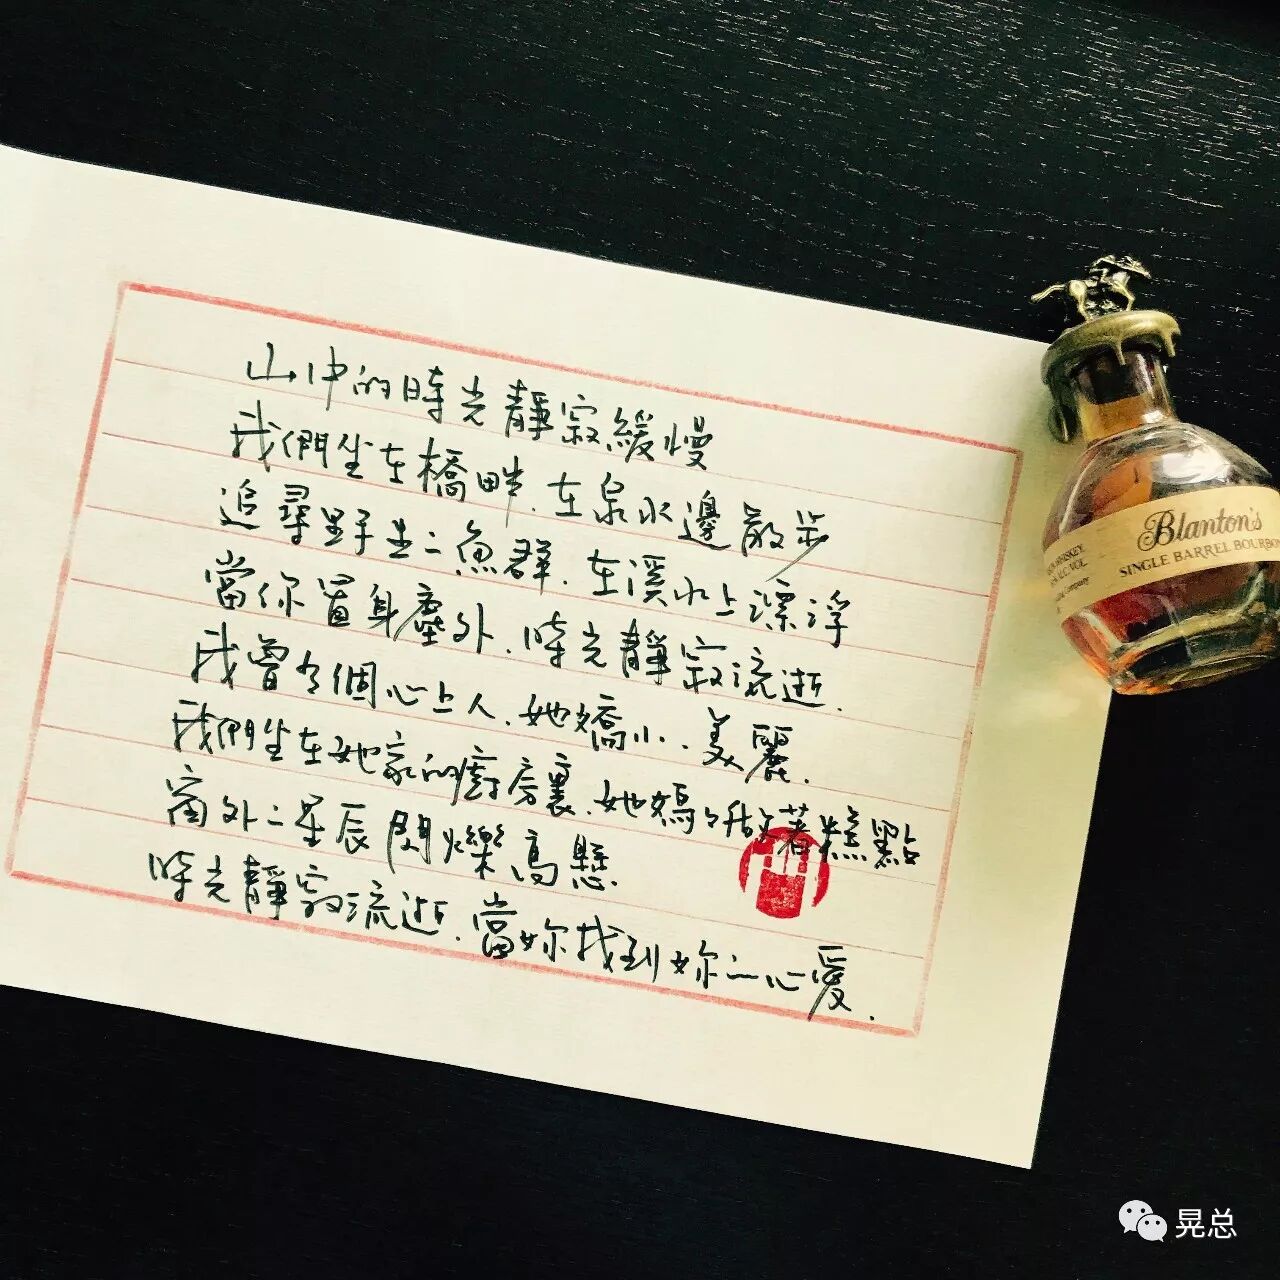 山中的時光靜寂緩慢
我們坐在橋畔.在泉水邊散步
追尋野生之魚群.在溪水上漂浮
當你置身塵外.時光靜寂流逝.
我曾有個心上人.她嬌小.美麗.
我們坐在她家的廚房裏.她媽々做着糕點
窗外之星辰閃爍高懸.
時光靜寂流逝.當妳找到妳之心愛.
Blanton's
SINGLE BARREL BOURBON
WHISKEY
晃总